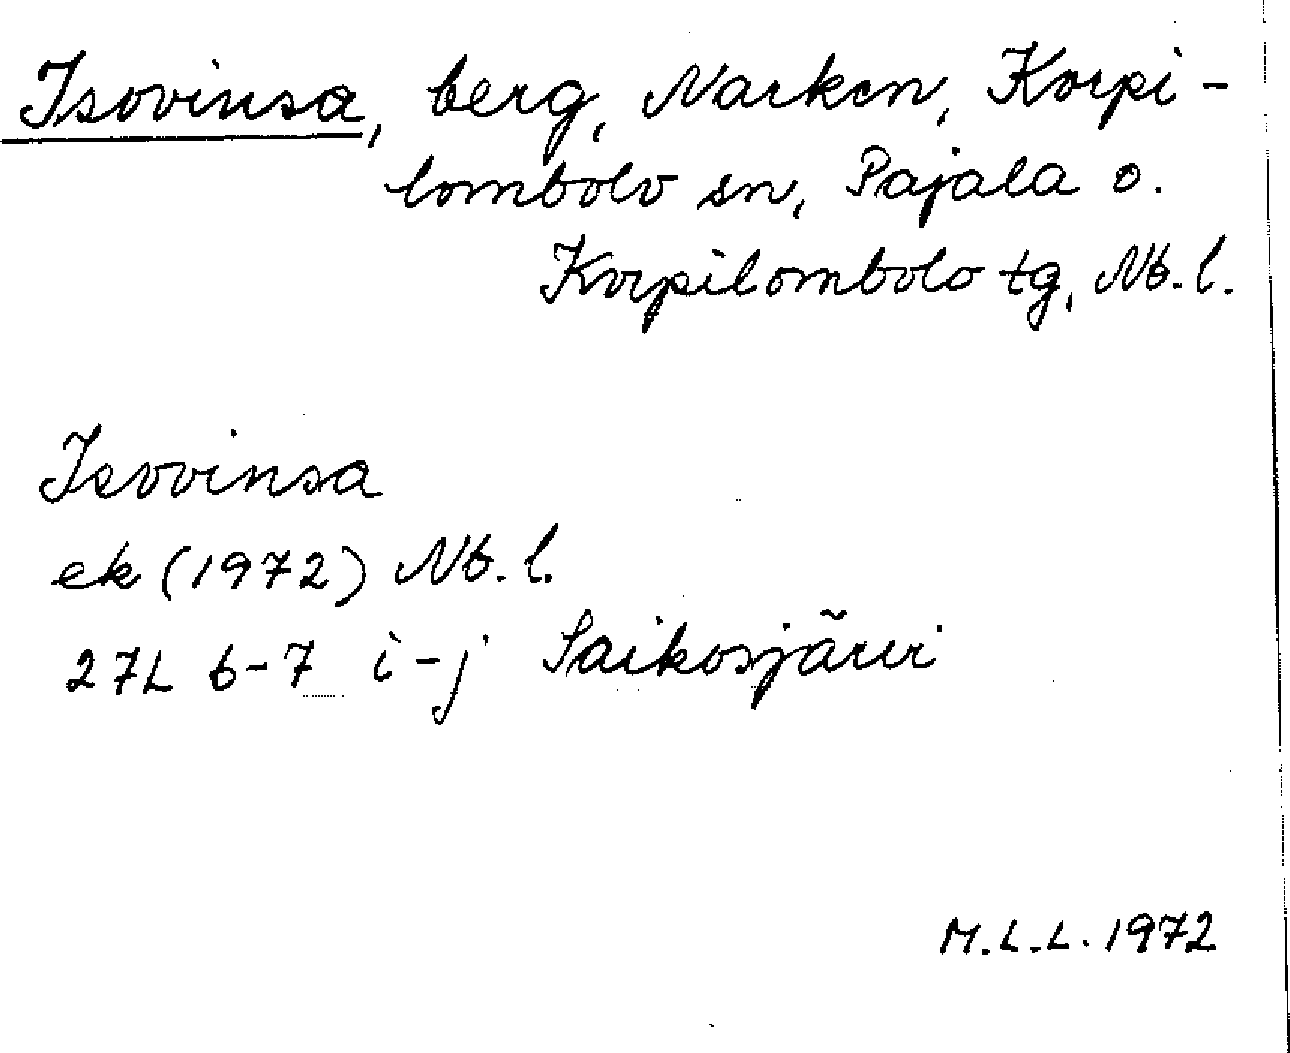 Isovinsa, berg, Narken, Korpi-
lombolo sn, Pajala o.
Korpilombolo tg, Nb.l.
Isovinsa
ek (1972) Nb.l.
27L 6-7 i-j Saikosjärvi
M.L.L. 1972